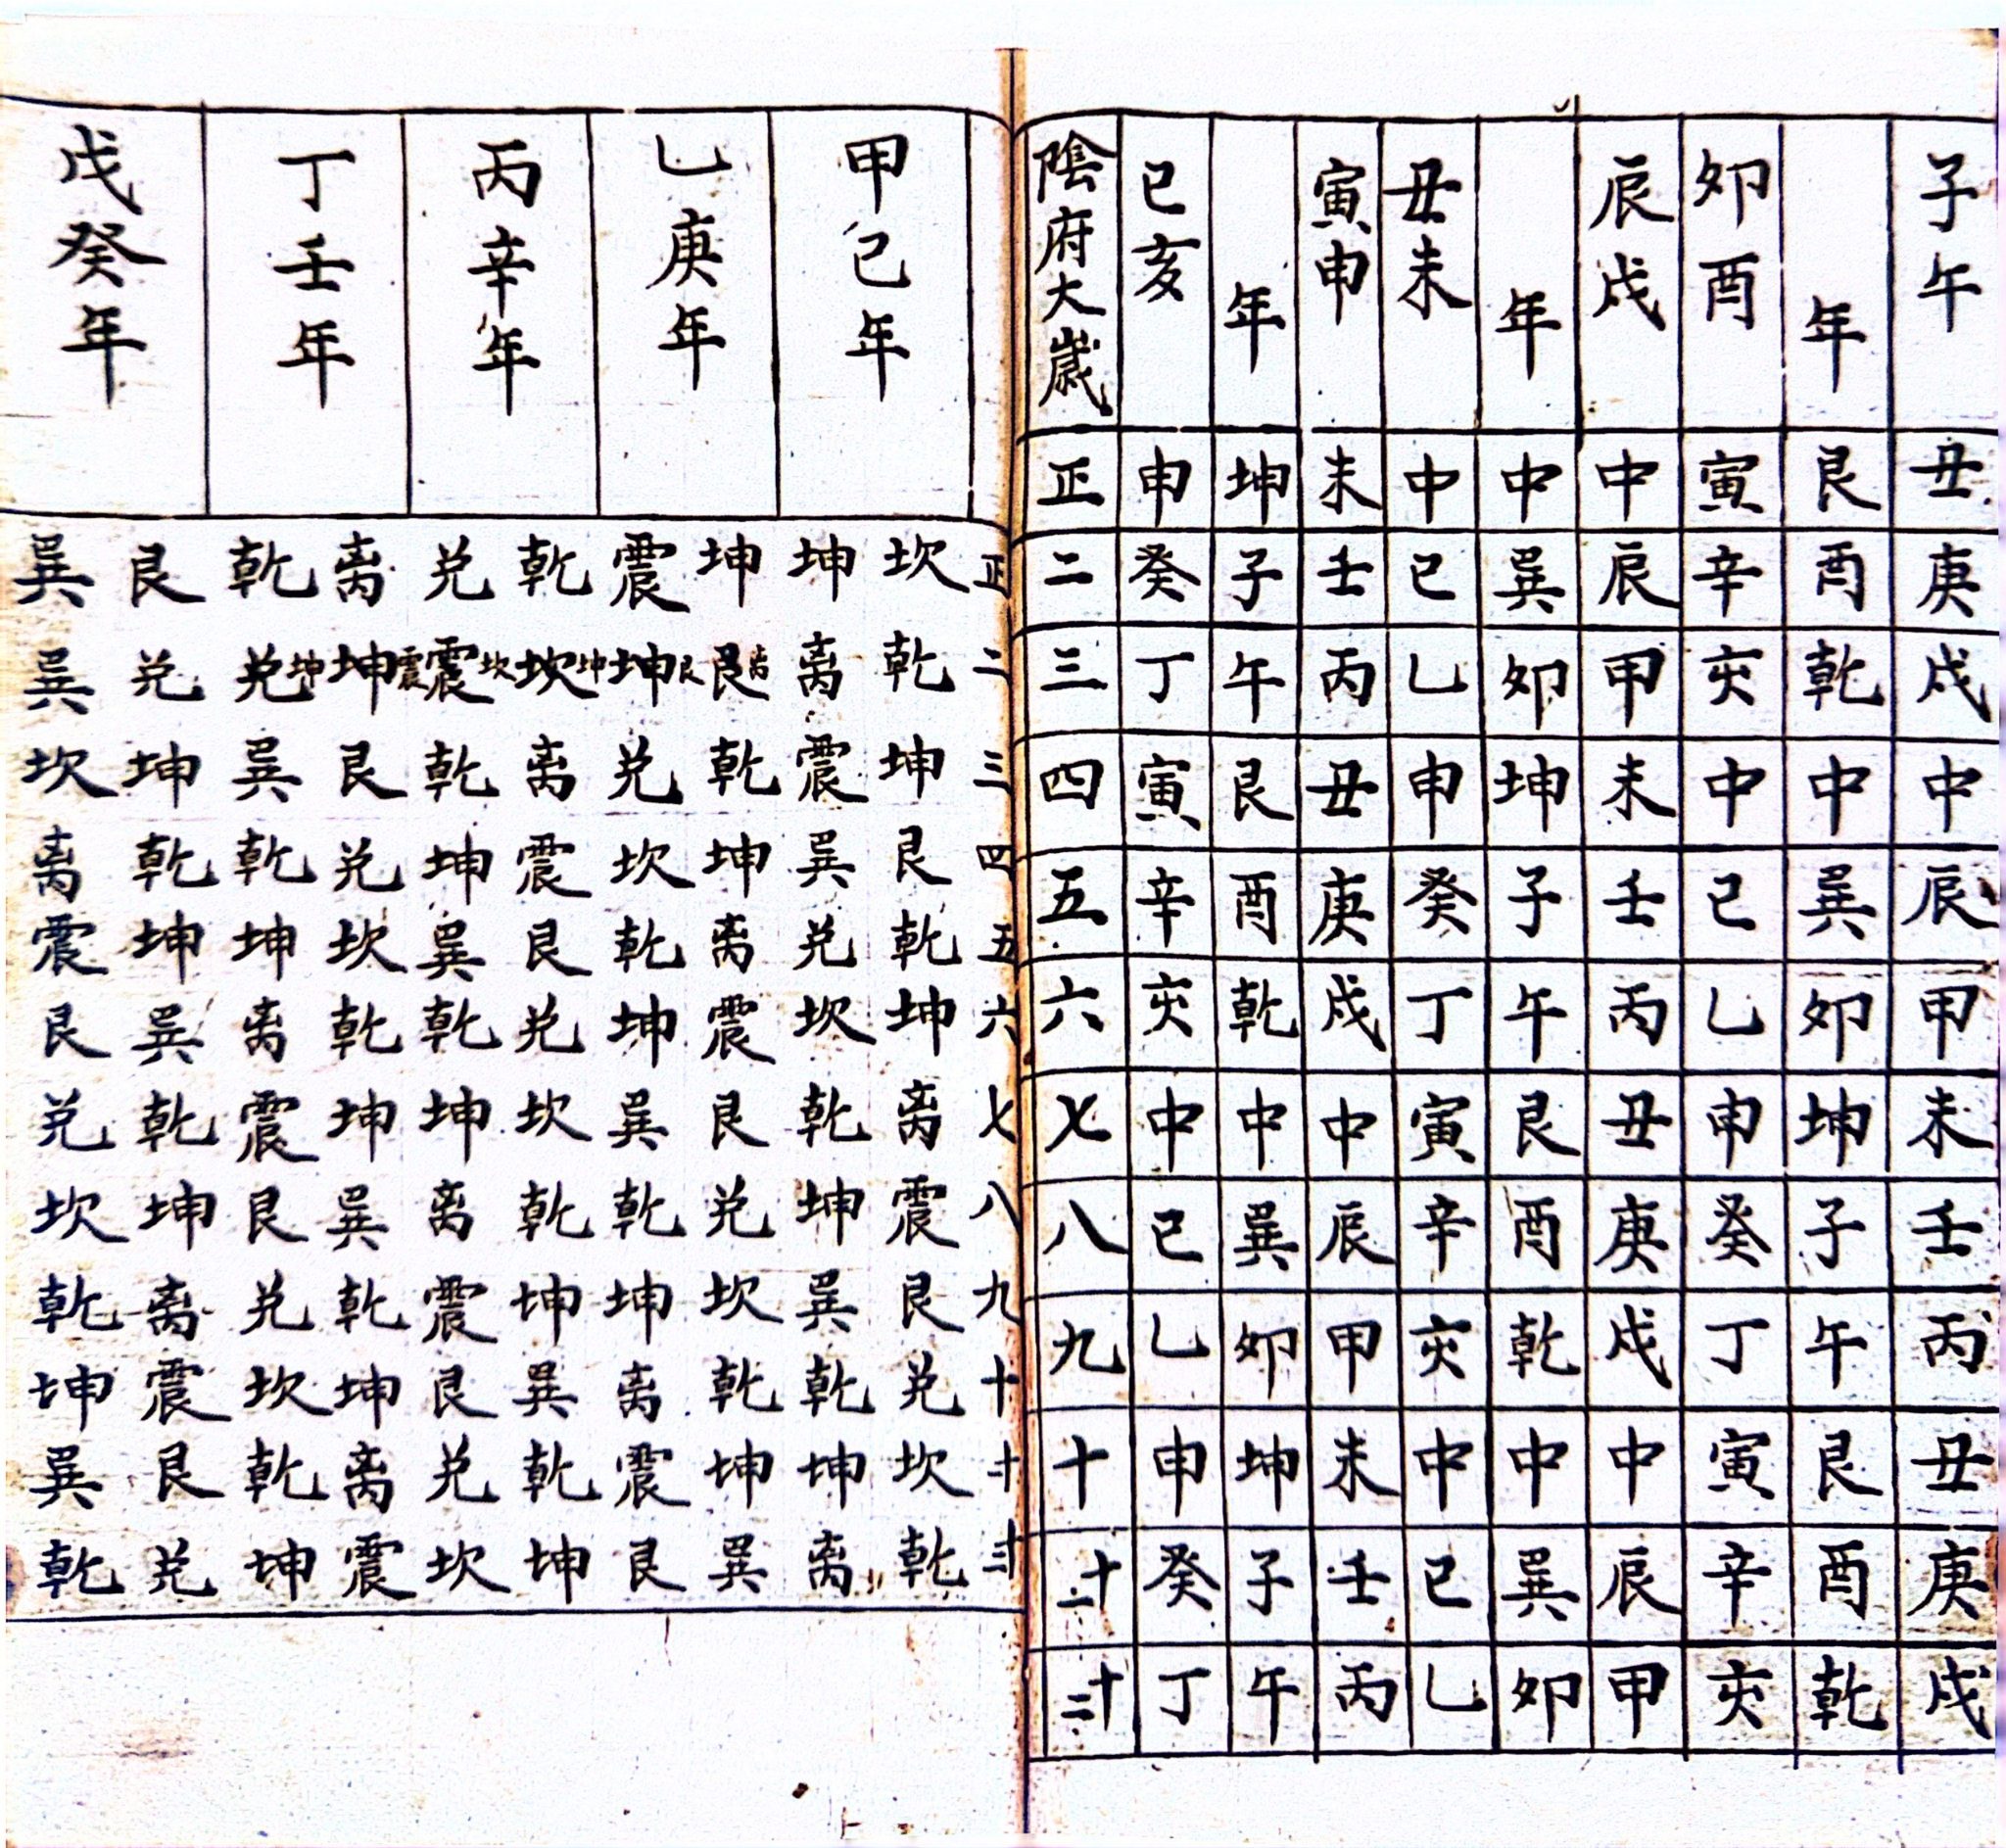 子午丑庚戌中辰甲未壬丙丑庚戌
年艮酉乾中巽卯坤子午艮酉乾
卯酉寅辛亥中巳乙申癸丁寅辛亥
辰戌中辰甲未壬丙丑庚戌中辰甲
年中巽卯坤子午艮酉乾中巽卯
丑未中巳乙申癸丁寅辛亥中巳乙
寅申未壬丙丑庚戌中辰甲未壬丙
年坤子午艮酉乾中巽卯坤子午
巳亥申癸丁寅辛亥中巳乙申癸丁
陰府大歲正二三四五六七八九十十一十二
正二三四五六七八九十十一十二
甲己年
坎乾坤艮乾坤离震艮兑坎乾
坤离震巽兑坎乾坤巽乾坤离
乙庚年
坤艮离乾坤离震艮兑坎乾坤巽
震坤艮兑坎乾坤巽乾坤离震艮
丙辛年
乾坎坤离震艮兑坎乾坤巽乾坤
兑震坎乾坤巽乾坤离震艮兑坎
丁壬年
离坤震艮兑坎乾坤巽乾坤离震
乾兑坤巽乾坤离震艮兑坎乾坤
戊癸年
艮兑坤乾坤巽乾坤离震艮兑
巽巽坎离震艮兑坎乾坤巽乾